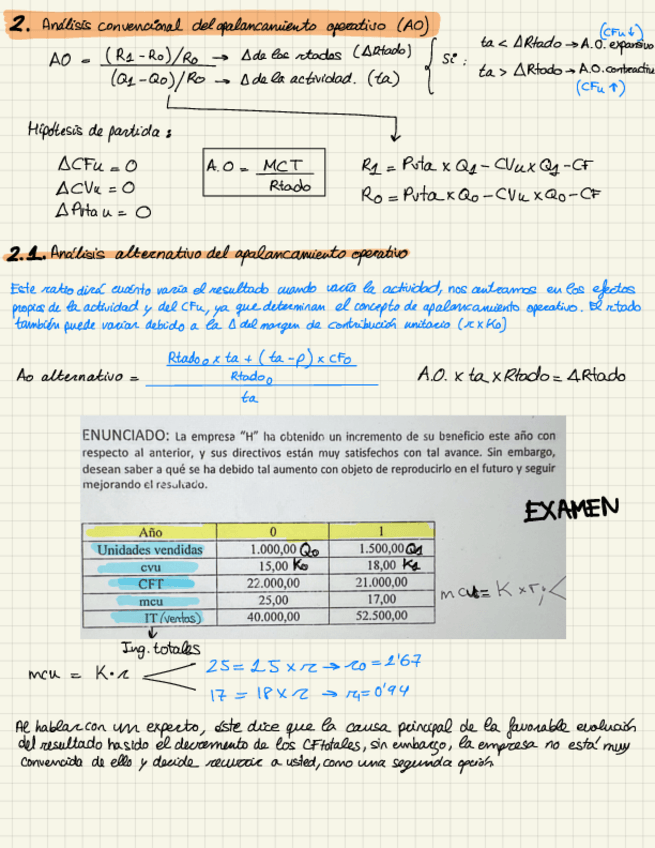 2. Análisis convencional del apalancamiento operativo (AO)
AO = (R1 - R0)/R0 → Δ de los rtados (ΔRtado)
(Q1 - Q0)/R0 → Δ de la actividad. (ta)
Si:
(CFu ↓)
ta < ΔRtado → A.O. expansivo
ta > ΔRtado → A.O. contractivo
(CFu ↑)
Hipótesis de partida:
ΔCFu = 0
ΔCVu = 0
ΔPvta u = 0
A.O = MCT
Rtado
R1 = Pvta x Q1 - CVu x Q1 - CF
R0 = Pvta x Q0 - CVu x Q0 - CF
2.1. Análisis alternativo del apalancamiento operativo
Este ratio dirá cuánto varía el resultado cuando varía la actividad, nos centramos en los efectos
propios de la actividad y del CFu, ya que determinan el concepto de apalancamiento operativo. El rtado
también puede variar debido a la Δ del margen de contribución unitario (r x K0)
Ao alternativo =
Rtado0 x ta + (ta - p) x CF0
Rtado0
ta
A.O. x ta x Rtado = ΔRtado
ENUNCIADO: La empresa "H" ha obtenido un incremento de su beneficio este año con
respecto al anterior, y sus directivos están muy satisfechos con tal avance. Sin embargo,
desean saber a qué se ha debido tal aumento con objeto de reproducirlo en el futuro y seguir
mejorando el resultado.
EXAMEN
Año 0 1
Unidades vendidas 1.000,00 Q0 1.500,00 Q1
cvu 15,00 K0 18,00 K1
CFT 22.000,00 21.000,00
mcu 25,00 17,00
IT (ventas) 40.000,00 52.500,00
mcu = K x r
Ing. totales
mcu = K · r
25 = 15 x r → r0 = 1'67
17 = 18 x r → r1 = 0'94
Al hablar con un experto, éste dice que la causa principal de la favorable evolución
del resultado ha sido el decremento de los CFtotales, sin embargo, la empresa no está muy
convencida de ello y decide recurrir a usted, como una segunda opción